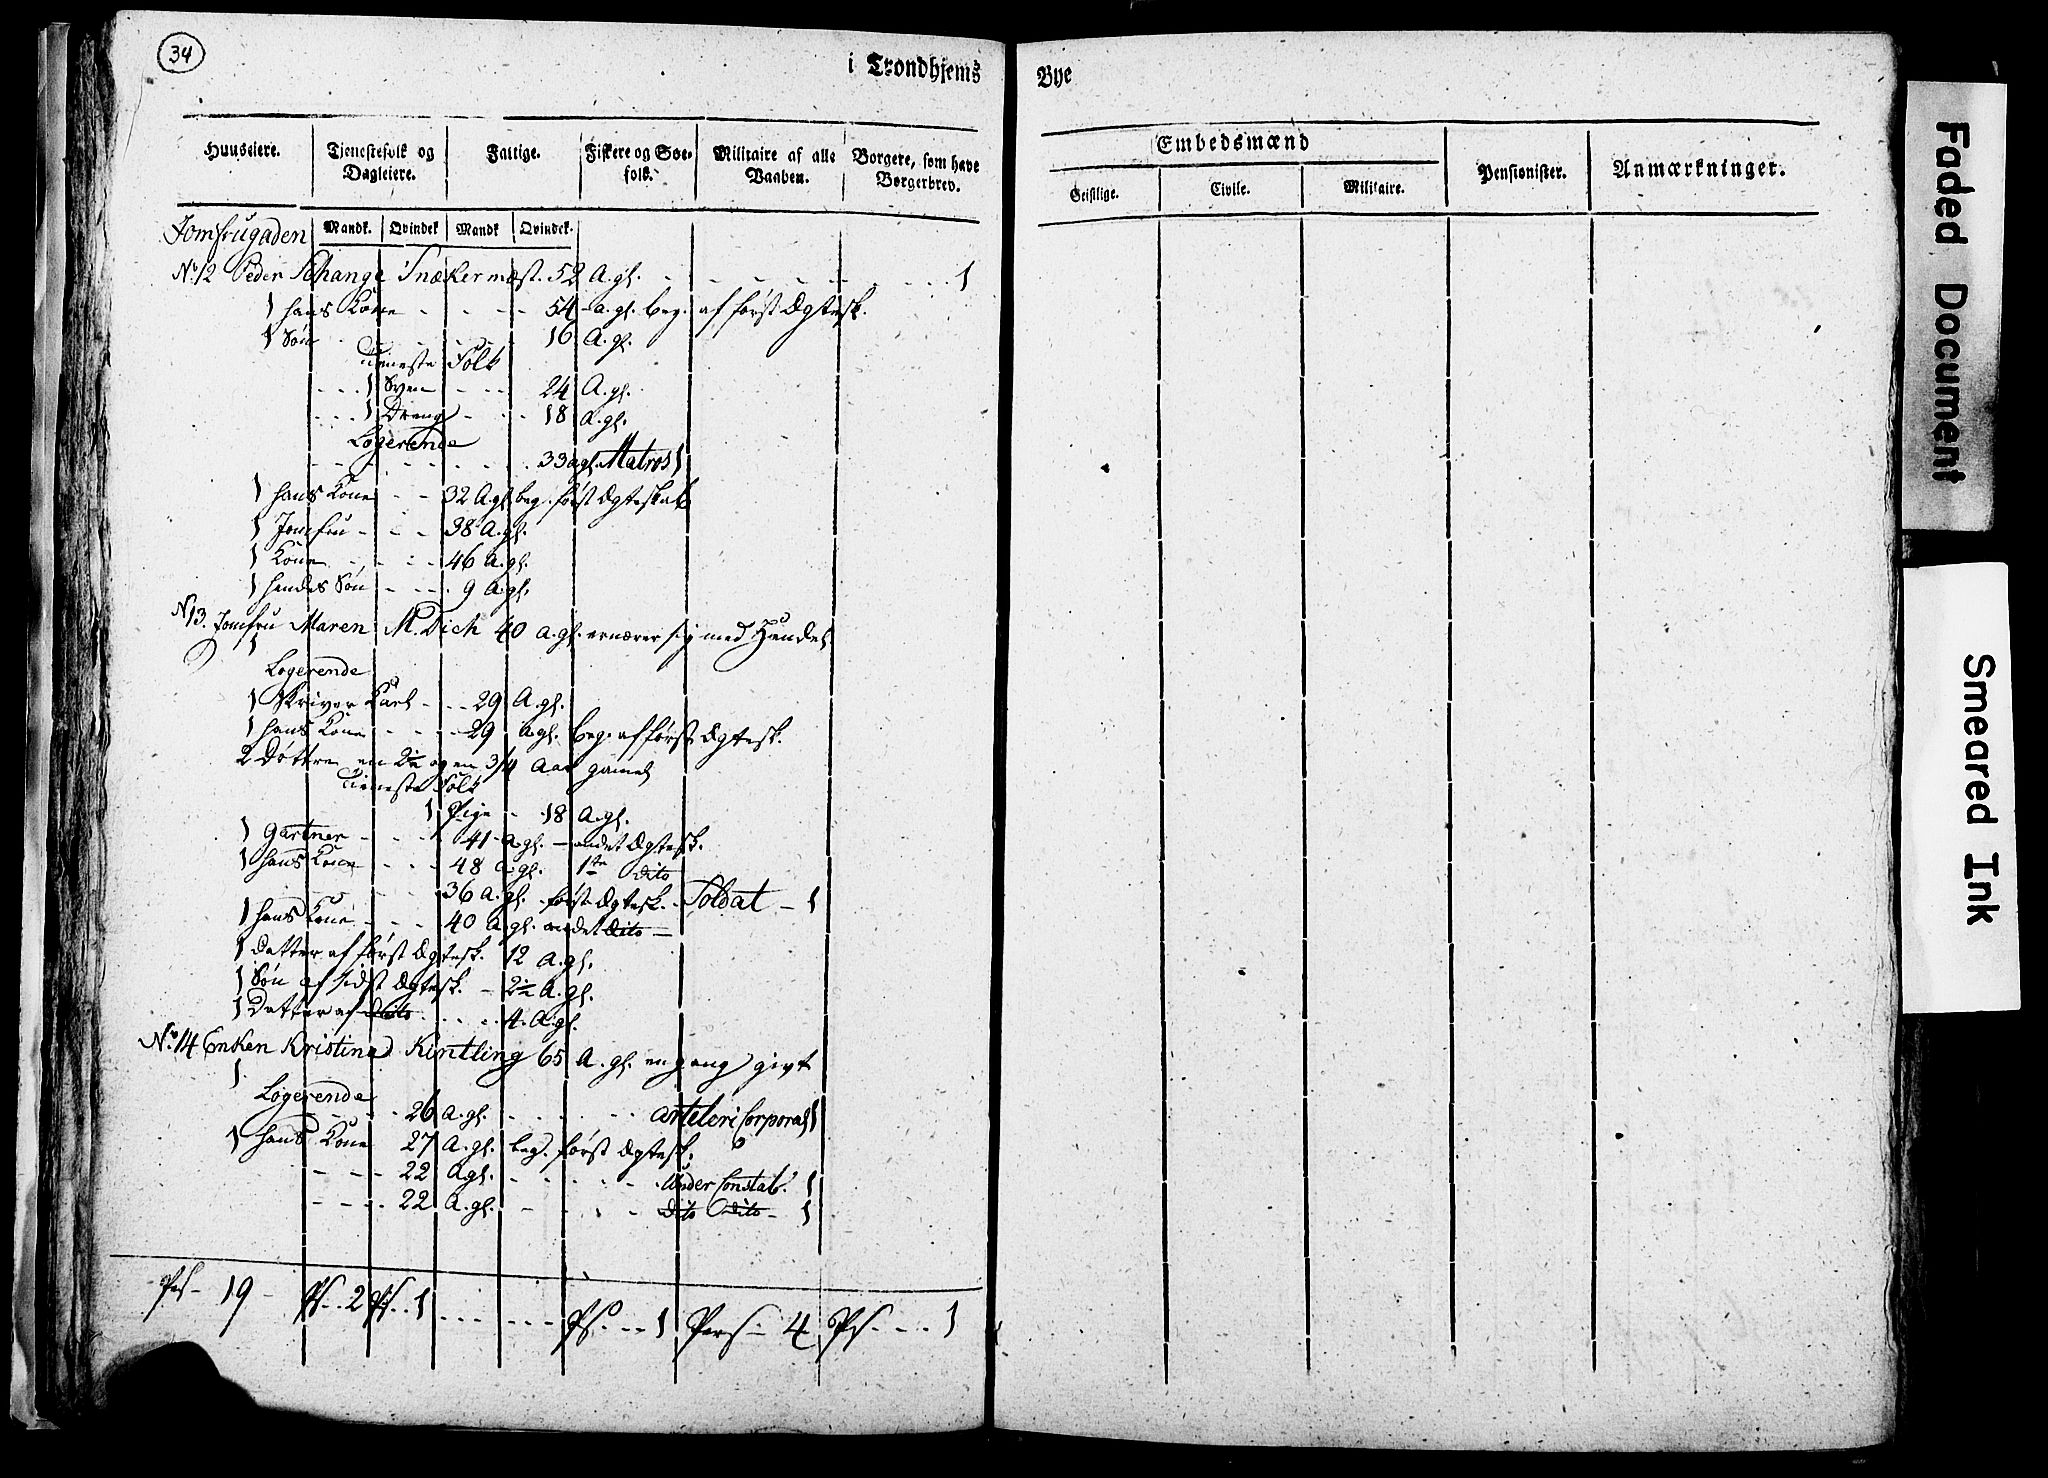 34
i Trondhjems Bye
Huuseiere. Tjenestefolk og Dagleiere. Fattige. Fiskere og Søefolk. Militaire af alle Vaaben. Borgere, som have Borgerbrev.
Embedsmænd Pensionister. Anmærkninger.
Geistlige. Civile. Militaire.
Mandk. Qvindek Mandk Qvindek.
Jomfrugaden
No. 12 Peder Schange Snækermæst. 52 A. gl. 1
1 hans Kone 54 a. gl. beg. af først Ægtesk.
1 Søn 16 A. gl.
Tieneste Folk
1 Sven 24 A. gl.
1 Dreng 18 A. gl.
Logerende
33 agl. Matros 1
1 hans Kone 32 A. gl. beg. først Ægteskab
1 Jomfru 38 A. gl.
1 Kone 46 A. gl.
1 hendes Søn 9 A. gl.
N 13. Jomfru Maren M. Dich 40 a. gl. ernærer sig med Handel
1
Logerende
1 Skriver Karl 29 A. gl.
1 hans Kone 29 A. gl. beg. af først Ægtesk.
2 Døttre en 2½ og en 3/4 Aar gamel
Tieneste Folk
1 Pige 18 A. gl.
1 Gartner 41 A. gl. andet Ægtesk.
1 hans Kone 48 A. gl. 1te dito
36 A. gl. først Ægtesk. Soldat 1
1 hans Kone 40 A. gl. andet dito
1 Datter af først Ægtesk. 12 A. gl.
1 Søn af sidst Ægtesk. 2½ A. gl.
1 Datter af dito 4 A. gl.
No. 14 Enken Kristina Kintling 65 A. gl. engang givt
1
Logerende
26 A. gl. arteleri Corporal 1
1 hans Kone 27 A. gl. beg. først Ægtesk.
22 A gl. Under Constab. 1
22 A. gl. dito dito 1
Ps 19 Ps. 2 Ps. 1 Ps. 1 Pers. 4 Ps. 1
Faded Document
Smeared Ink